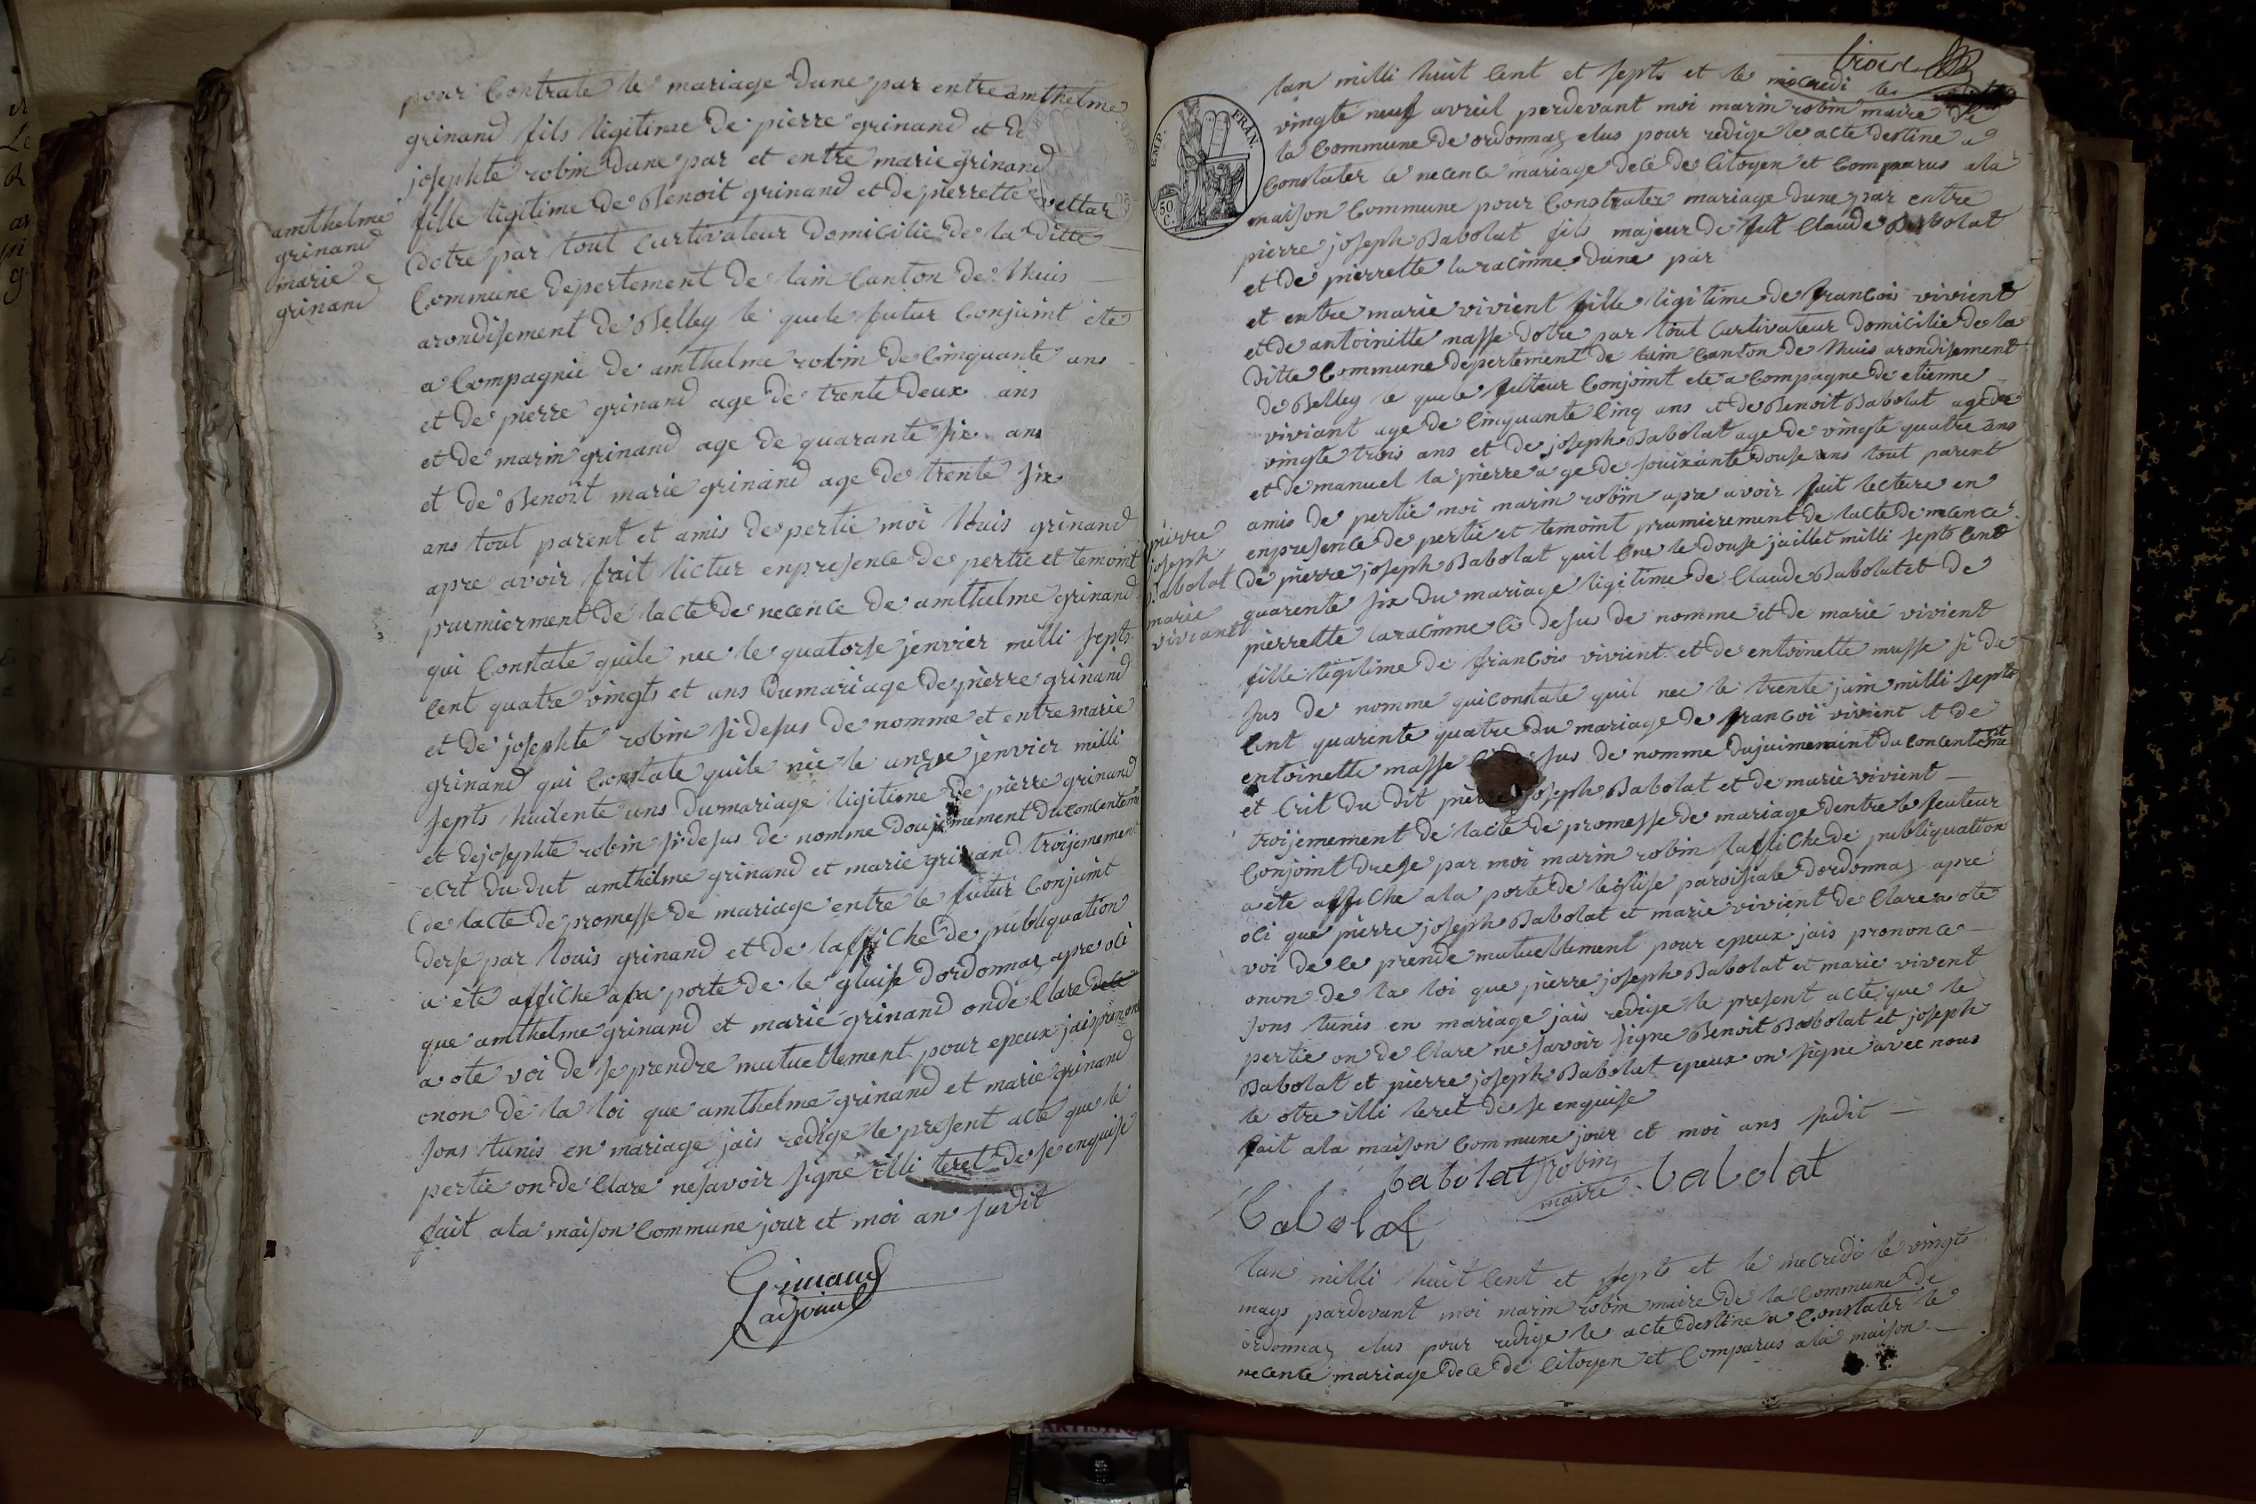 pour Contrate le mariage dune par entre amthelme
grinand fils ligitime de pierre grinand et de
josephte robin dune par et entre marie grinand
fille ligitime de Benoit grinand et de pierrette vettar
dotre par tout Curtivateur domicilie de la ditte
Commune depertement de lain Canton de lhuis
arondisement de Belley le quele futur Conjoint ete
a Compagnie de amthelme robin de Cinquante ans
et de pierre grinand age de trente deux ans
et de marin grinand age de quarante six ans
et de Benoit marie grinand age de trente six
ans tout parent et amis de pertie moi louis grinand
apre avoir fait lictur enpresence de pertie et temoint
prumierment de lacte de necence de amthelme grinand
qui Constate quile nee le quatorse jenvier milli septs
Cent quatre vingts et ans du mariage de pierre grinand
et de josephte robin si desus de nomme et entre marie
grinand qui Constate quile nee le unze jenvier milli
septs huitente uns du mariage ligitime de pierre grinand
et de josephte robin si desus de nomme doujemement du concenteme
ecrt du dut amthelme grinand et marie grinand troijemement
de lacte de promesse de mariage entre le futur Conjoint
derse par louis grinand et de laffiche de publiquation
a ete affiche a la porte de le glaise dordonnaz apre oci
que amthelme grinand et marie grinand onde Clare dela
a ote voi de se prendre mutuellement pour epeux jais prenonc
onon de la loi que amthelme grinand et marie grinand
sons tunis en mariage jais redige le present acte que le
pertie on de Clare ne savoir signe illi teret de se enquise
fait a la maison Commune jour et moi an sudit
Grinand
Ladjoint
amthelme
grinand
marie
grinand
trois
lan milli huit Cent et septs et le mecredi le
vingte neuf avreil perdevant moi marin robin maire de
la Commune de ordonnaz elus pour redige le acte destine a
Constater le necence mariage dele de Citoyen et Comparus a la
maison Commune pour Constrater mariage dune par entre
pierre joseph Babolat fils majeur de fut Claude Babolat
et de pierrette laracinne dune par
et entre marie vivient fille ligitime de francois vivient
et de antoinitte masse dotre par tout Curtivateur domicilie de la
ditte Commune depertement de lain Canton de lhuis arondisement
de Belley le quele futeur Conjoint ete a Compagne de etienne
viviant age de Cinquante Cinq ans et de Benoit Babolat age de
vingte trois ans et de joseph Babolat age de vingte quatre ans
et de manuel la pierre a ge de souixante douse ans tout parent
amis de pertie moi marin robin apre avoir fait lecture en
enpresence de pertie et temoint prumierement de lacte de necence
de pierre joseph Babolat quil Ene le douse jaillet milli septs Cent
quarente six du mariage ligitime de Claude Babolat et de
pierrette laracinne Ci desus de nomme et de marie vivient
fille ligitime de francois vivient et de entoinette masse si de
sus de nomme qui Constate quil nee le trente juin milli septs
Cent quarente quatre du mariage de francoi vivient et de
entoinette masse Ci desus de nomme dujuimemint du concenteme
et Crit du dit pierre joseph Babolat et de marie vivient
troijemement de lacte de promesse de mariage dentre le feuteur
Conjoint drese par moi marin robin laffiche de publiquation
a ete affiche a la porte de leglise paroisiale dordonnaz apre
oci que pierre joseph Babolat et marie vivient de Clare a ote
voi de le prende mutuellement pour epeux jais prononce
onon de la loi que pierre joseph Babolat et marie vivent
sons tunis en mariage jais redige le present acte que le
pertie on de Clare ne savoir signe Benoit Babolat et joseph
Babolat et pierre joseph Babolat epeux on signe avec nous
le otre illi teret de se enquise
fait a la maison Commune jour et moi ans sudit
babolat robin babolat
maire
Babolat
pierre
joseph
Babolat
marie
viviant
EMP. FRAN.
50 C.
lan milli huit Cent et septs et le mecredi le vingts
mays pardevant moi marin robin maire de la Commune de
ordonnaz elus pour redige le acte destine a Constater le
necente mariage dele de Citoyen et Comparus a la maison